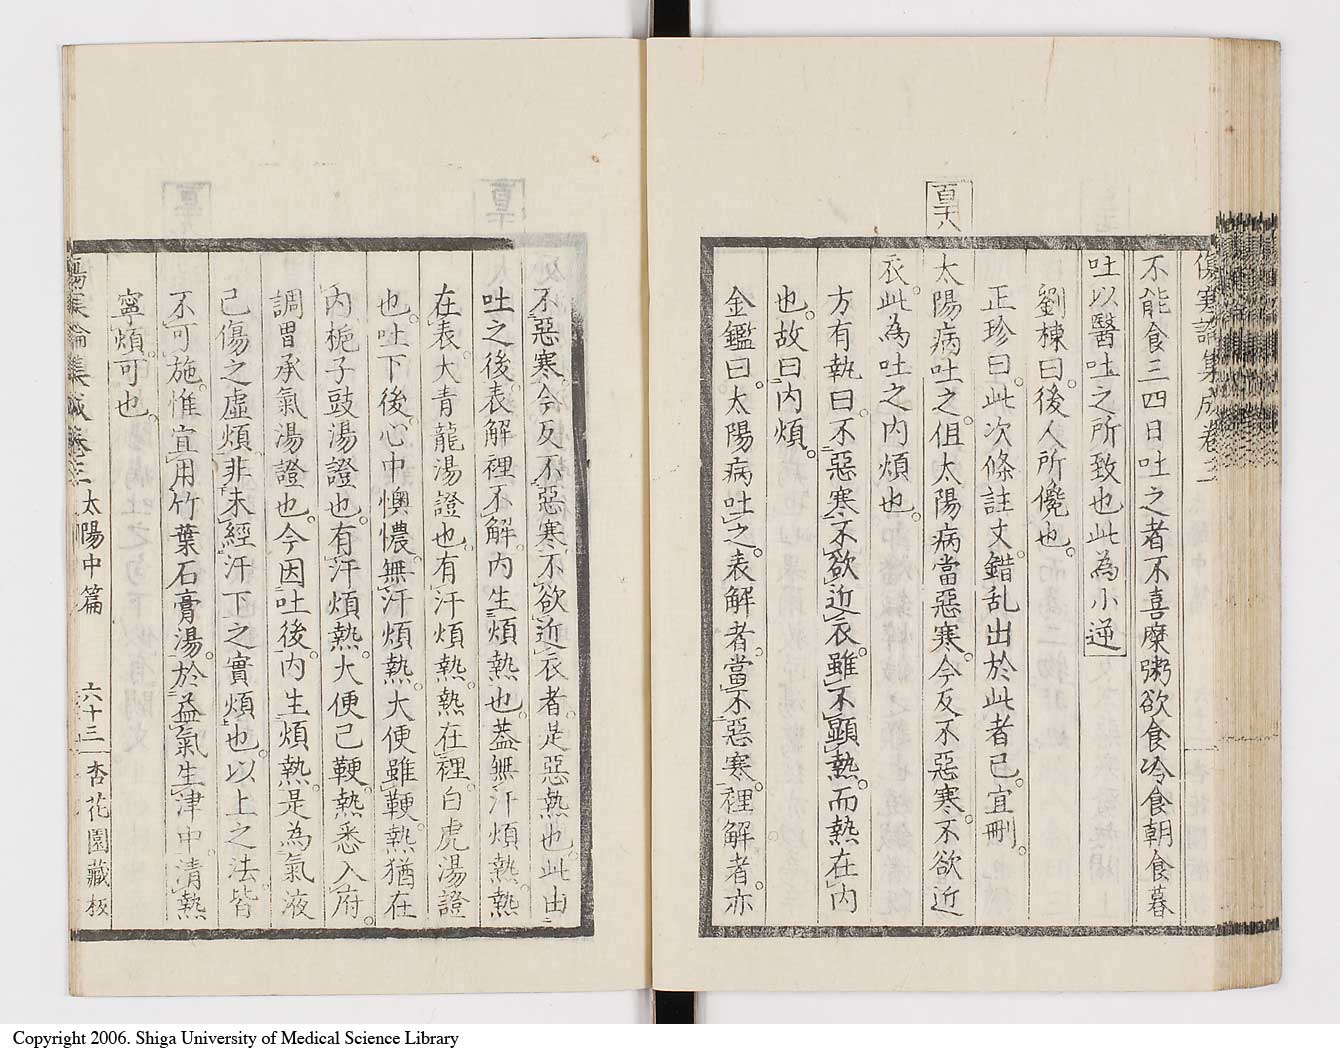 傷寒論集成卷三
不能食三四日吐之者不喜糜粥欲食冷食朝食暮
吐以醫吐之所致也此為小逆
劉棟曰後人所儳也
正珍曰此次條註文錯乱出於此者已宜刪
百十八
太陽病吐之但太陽病當惡寒今反不惡寒不欲近
衣此為吐之内煩也
方有執曰不惡寒不欲近衣雖不顯熱而熱在内
也故曰内煩
金鑑曰太陽病吐之表解者當不惡寒裡解者亦
不惡寒今反不惡寒不欲近衣者是惡熱也此由
吐之後表解裡不解内生煩熱也蓋無汗煩熱熱
在表大青龍湯證也有汗煩熱熱在裡白虎湯證
也吐下後心中懊憹無汗煩熱大便雖鞕熱猶在
内梔子豉湯證也有汗煩熱大便已鞕熱悉入府
調胃承氣湯證也今因吐後内生煩熱是為氣液
已傷之虛煩非未經汗下之實煩也以上之法皆
不可施惟宜用竹葉石膏湯於益氣生津中清熱
寧煩可也
傷寒論集成卷三 太陽中篇 六十三 杏花園藏板
Copyright 2006. Shiga University of Medical Science Library